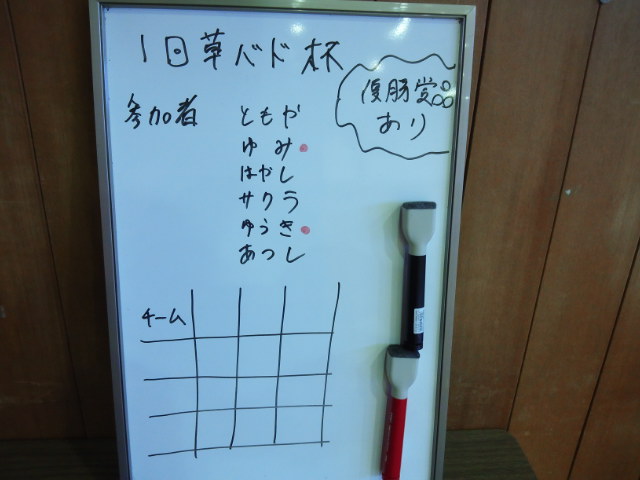 1回草バド杯
優勝賞品
あり
参加者
ともや
ゆみ
はがし
サクラ
ゆうき
あつし
チーム